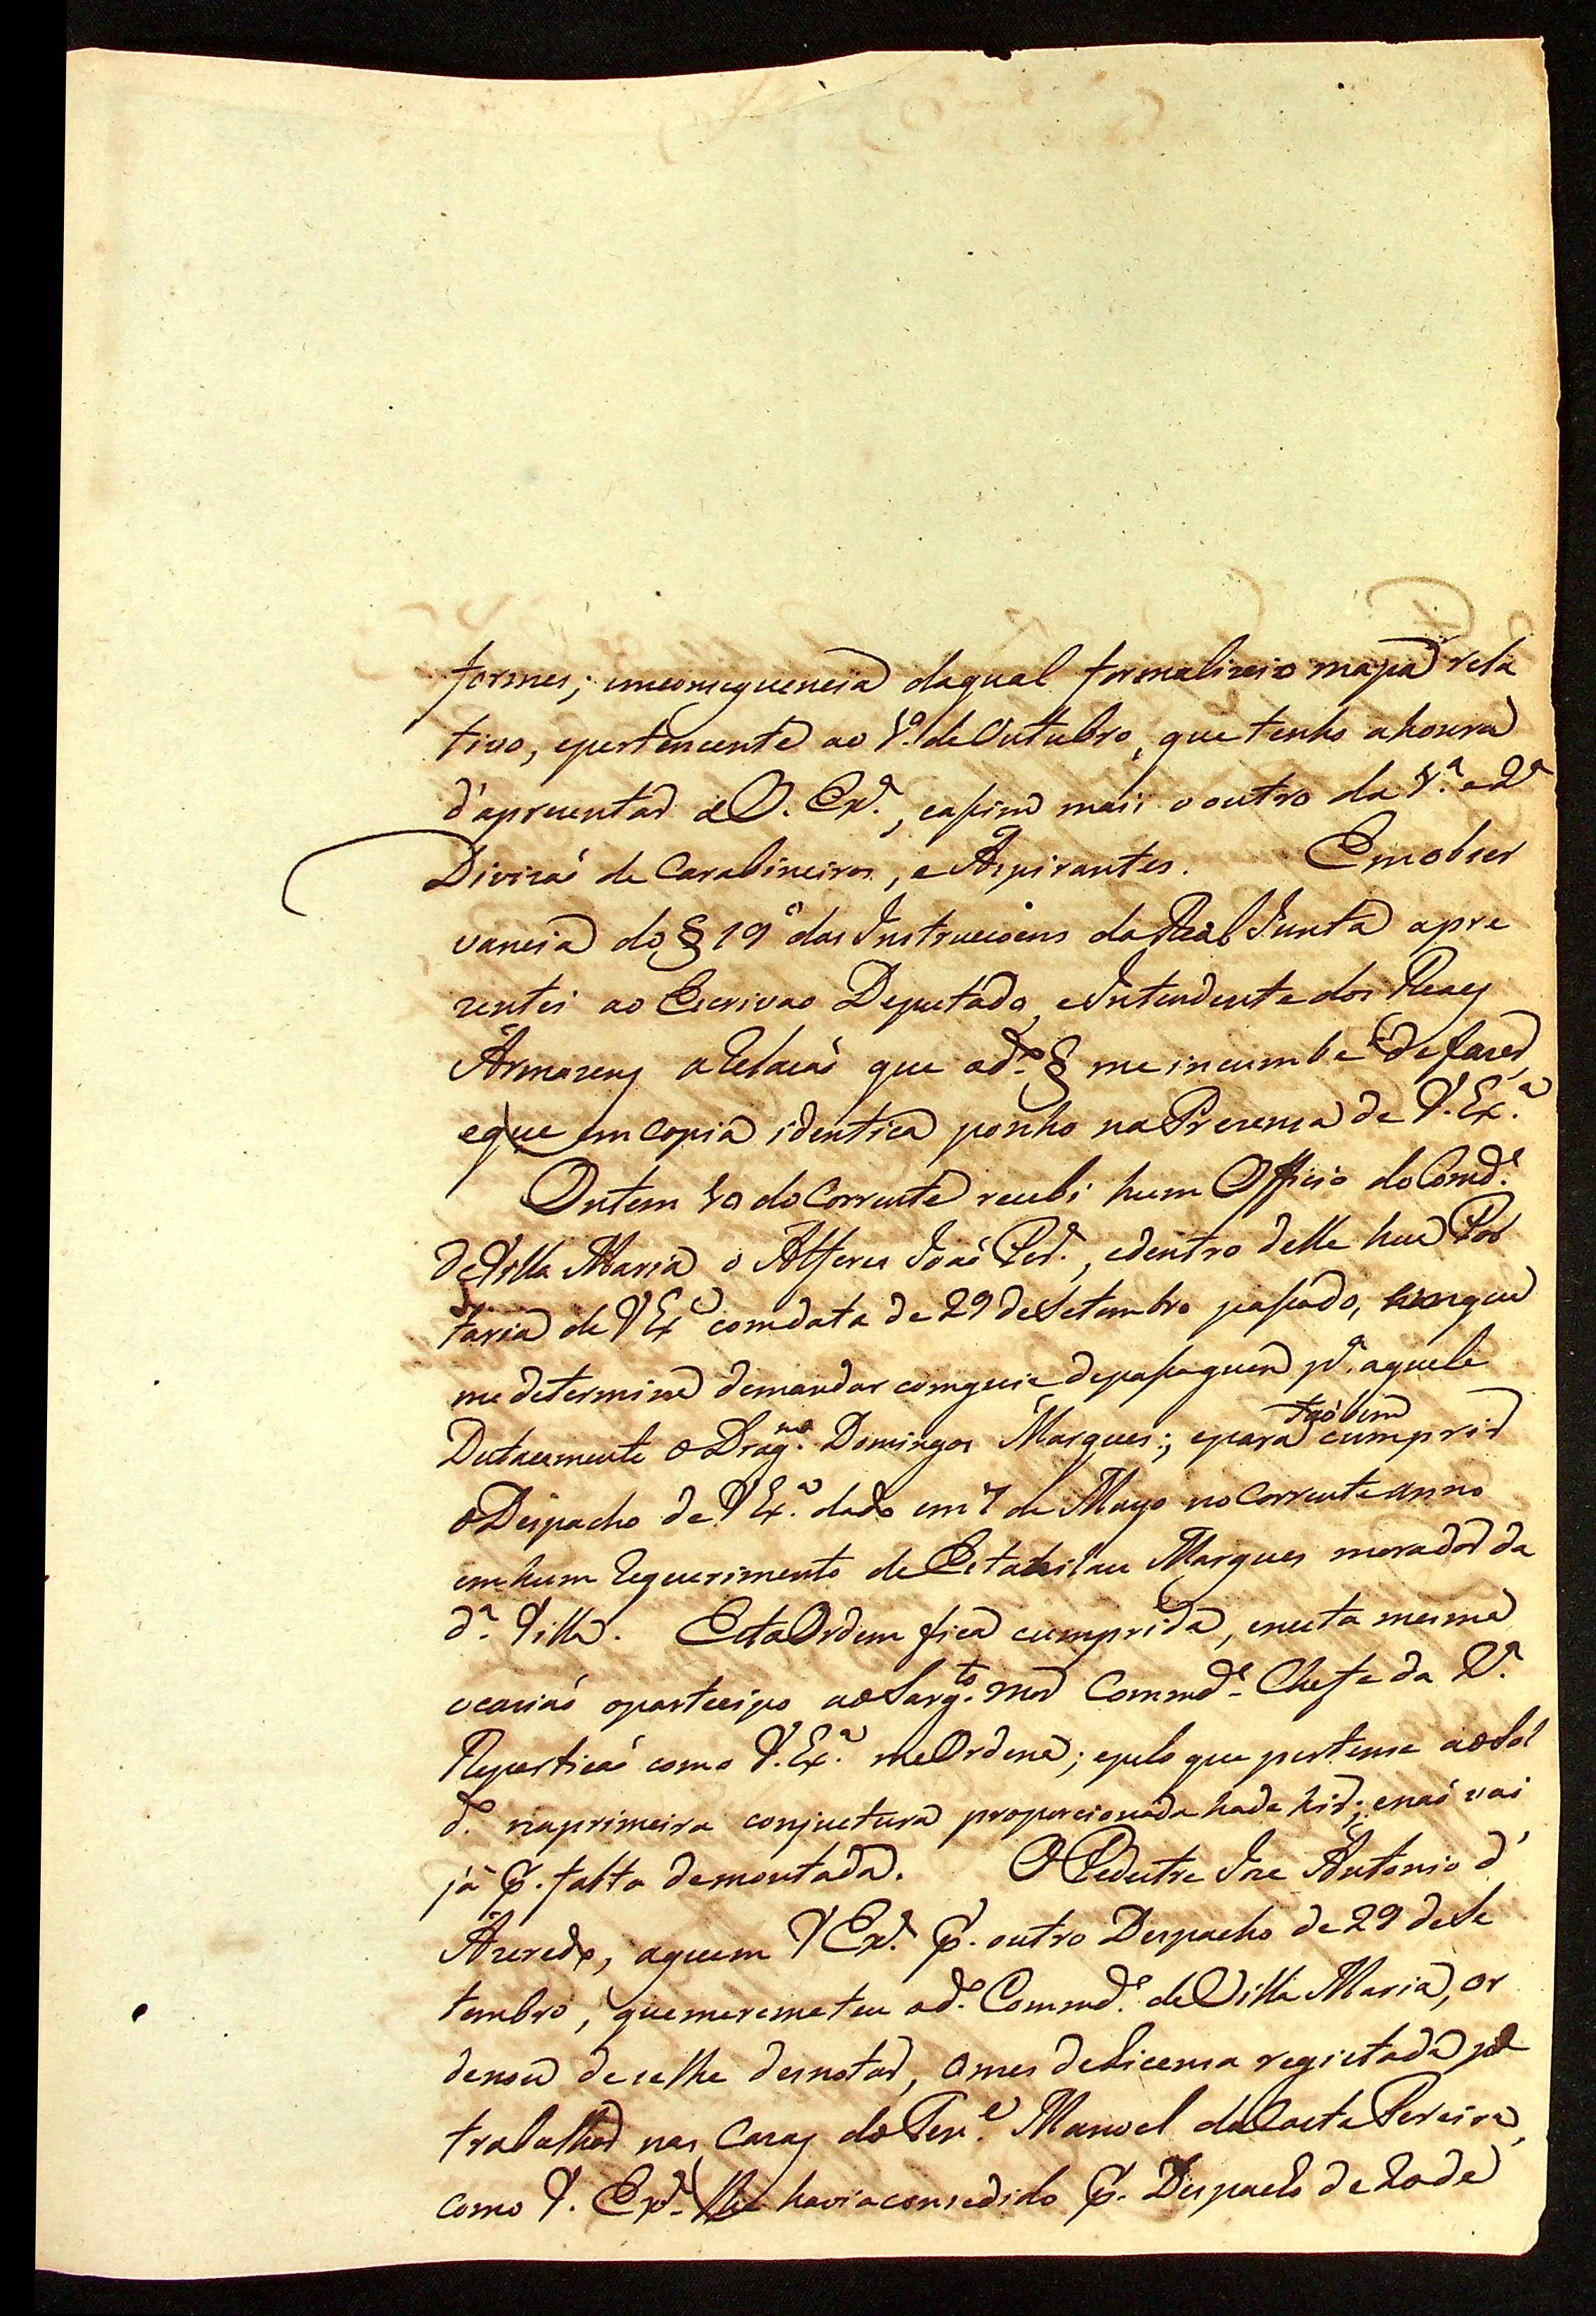 formes; emconsequencia daqual formalizei o mapa rela
tivo, epertencente ao 1º. de Outubro, que tenho ahonra
d'aprezentar a V. Exª., easim mais o outro da 1ª. e 2ª
Divizaó de Carabineiros, e Aspirantes. Em obser
vancia do § 19º das Instrucçoens da Real Junta apre
zentei ao Escrivao Deputado, e Intendente dos Reaes
Armazens a Relacaó que o dº. § me incumbe de fazer,
eque em copia identica ponho na Prezensa de V. Exª.
Ontem 10 do Corrente recebi hum Officio do Comdᵉ.
de Villa Maria o Alferes Joaó Perª., edentro delle hua Por
taria de V Exª com data de 29 de Setembro pasado, em que
me determina de mandar com guia de pasagem pª. aquele
Destacamento o Dragᵐ. Domingos Marques; epara taóbem cumprir
o Despacho de V Exª. dado em 7 de Mayo no Corrente anno
em hum Requerimento de Estanislau Marques morador da
dª. Villa. Esta Ordem fica cumprida, enesta mesma
ocaziaó o participo ao Sargᵗᵒ. mor Commdᵉ. Chefe da 2ª.
Reparticaó como V. Exª. me Ordena; epelo que pertense ao Sol
dº. na primeira conjuctura proporcionada hade hir; enaó vai
já p. falta de montada. O Pedestre Joze Antonio d'
Azeredo, aquem V Exª. p. outro Despacho de 29 de Se
tembro, que me remeteu o dº. Commdᵉ. de Villa Maria, or
denou de se lhe desnotar, o mes de Licensa registada pª
trabalhar nas Cazas do Tenᵉ. Manoel da Costa Pereira,
como V. Exª. lhe havia consedido p. Despacho de 10 de